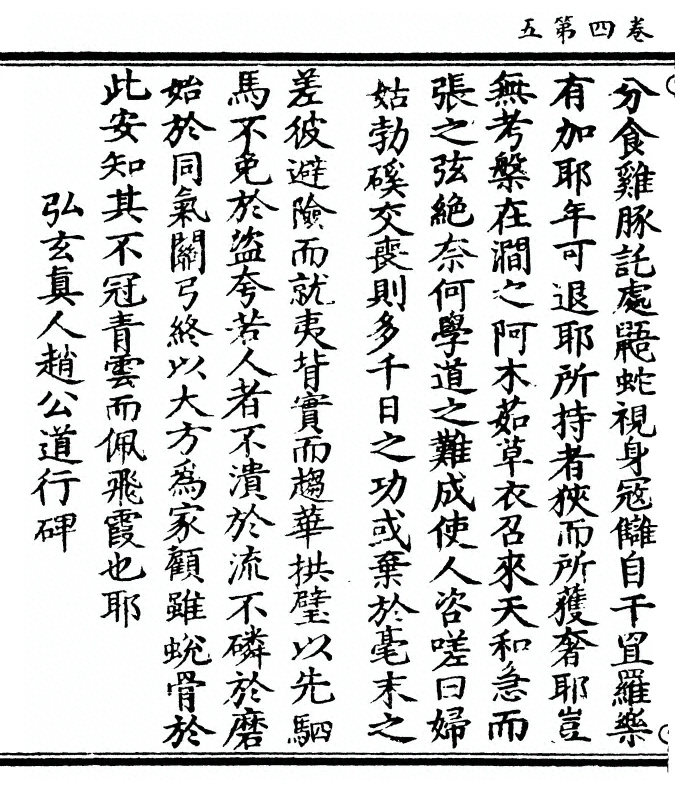 卷四第五
分食雞豚託處鼯蛇視身寇讎自干罝羅樂
有加耶年可退耶所持者狹而所獲奢耶豈
無考槃在澗之阿木茹草衣召來天和急而
張之弦絕奈何學道之難成使人咨嗟曰婦
姑勃磎交喪則多千日之功或棄於毫末之
差彼避險而就夷背實而趨華拱璧以先駟
馬不免於盜夸若人者不潰於流不磷於磨
始於同氣關弓終以大方為家顧雖蛻骨於
此安知其不冠青雲而佩飛霞也耶
弘玄真人趙公道行碑